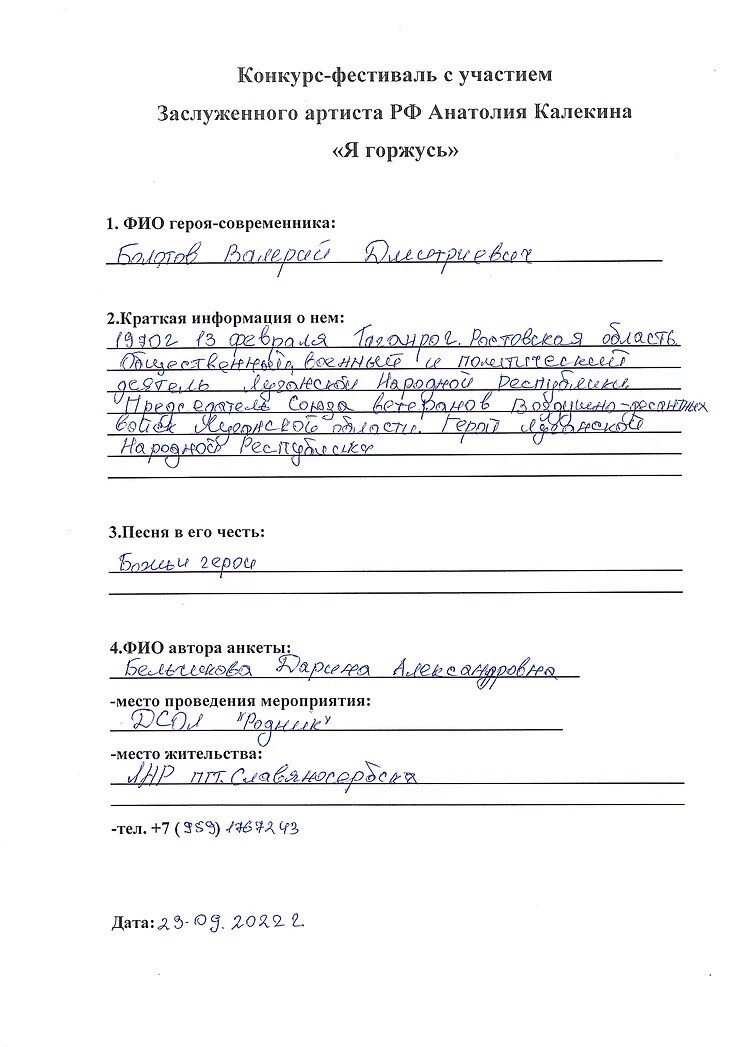 Конкурс-фестиваль с участием
Заслуженного артиста РФ Анатолия Калекина
«Я горжусь»
1. ФИО героя-современника:
Болотов Валерий Дмитриевич
2.Краткая информация о нем:
1970г 13 февраля Таганрог. Ростовская область.
Общественный, военный и политический
деятель Луганской Народной Республики
Председатель Союза ветеранов Воздушно-десантных
войск Луганской области. Герой Луганской
Народной Республики
3.Песня в его честь:
Божьи герои
4.ФИО автора анкеты:
Бельчикова Дарина Александровна
-место проведения мероприятия:
ДСОЛ "Родник"
-место жительства:
ЛНР пгт. Славяносербск
-тел. +7 (959) 1767243
Дата: 23.09.2022г